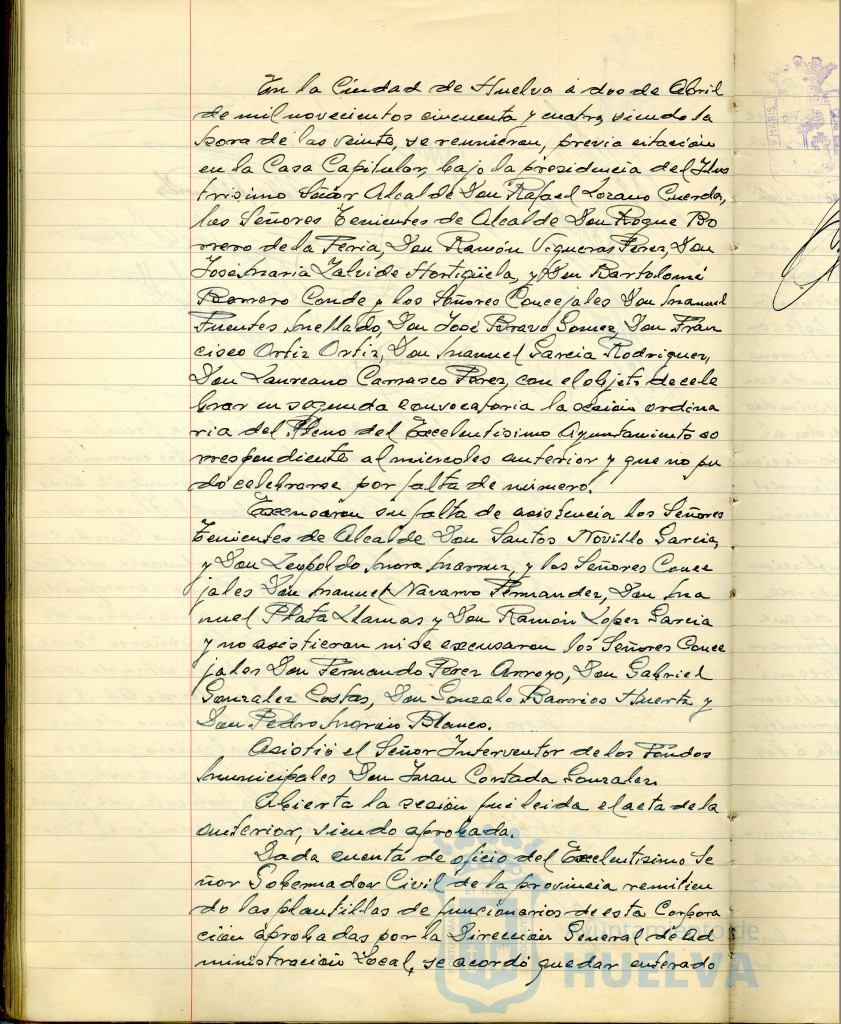 En la Ciudad de Huelva á dos de Abril
de mil novecientos cincuenta y cuatro, siendo la
hora de las veinte, se reunieron, previa citación
en la Casa Capitular, bajo la presidencia del Ilus
trisimo Señor Alcalde Don Rafael Lozano Cuerda,
los Señores Tenientes de Alcalde Don Roque Bo
rrero de la Feria, Don Ramón Vigueras Perez, Don
José Maria Zalvide Hortigüela, y Don Bartolomé
Borrero Conde y los Señores Concejales Don Manuel
Fuentes Mellado, Don José Bravo Gomez, Don Fran
cisco Ortiz Ortiz, Don Manuel Garcia Rodriguez,
Don Laureano Carrasco Perez, con el objeto de cele
brar en segunda convocatoria la sesión ordina
ria del Pleno del Excelentisimo Ayuntamiento co
rrespondiente al miercoles anterior y que no pu
do celebrarse por falta de número.
Excusaron su falta de asistencia los Señores
Tenientes de Alcalde Don Santos Novillo Garcia,
y Don Leopoldo Mora, y los Señores Conce
jales Don Manuel Navarro Fernandez, Don Ma
nuel Plata Llamas y Don Ramón Lopez Garcia
y no asistieron ni se excusaron los Señores Conce
jales Don Fernando Perez Arroyo, Don Gabriel
Gonzalez Costas, Don Gonzalo Barrios Huerta y
Don Pedro Blanco.
Asistió el Señor Interventor de los Fondos
Municipales Don Juan Cortada Gonzalez.
Abierta la sesión fué leida el acta de la
anterior, siendo aprobada.
Dada cuenta de oficio del Excelentisimo Se
ñor Gobernador Civil de la provincia remitien
do las plantillas de funcionarios de esta Corpora
ción aprobadas por la Dirección General de Ad
ministración Local, se acordó quedar enterado
Ayuntamiento de
HUELVA